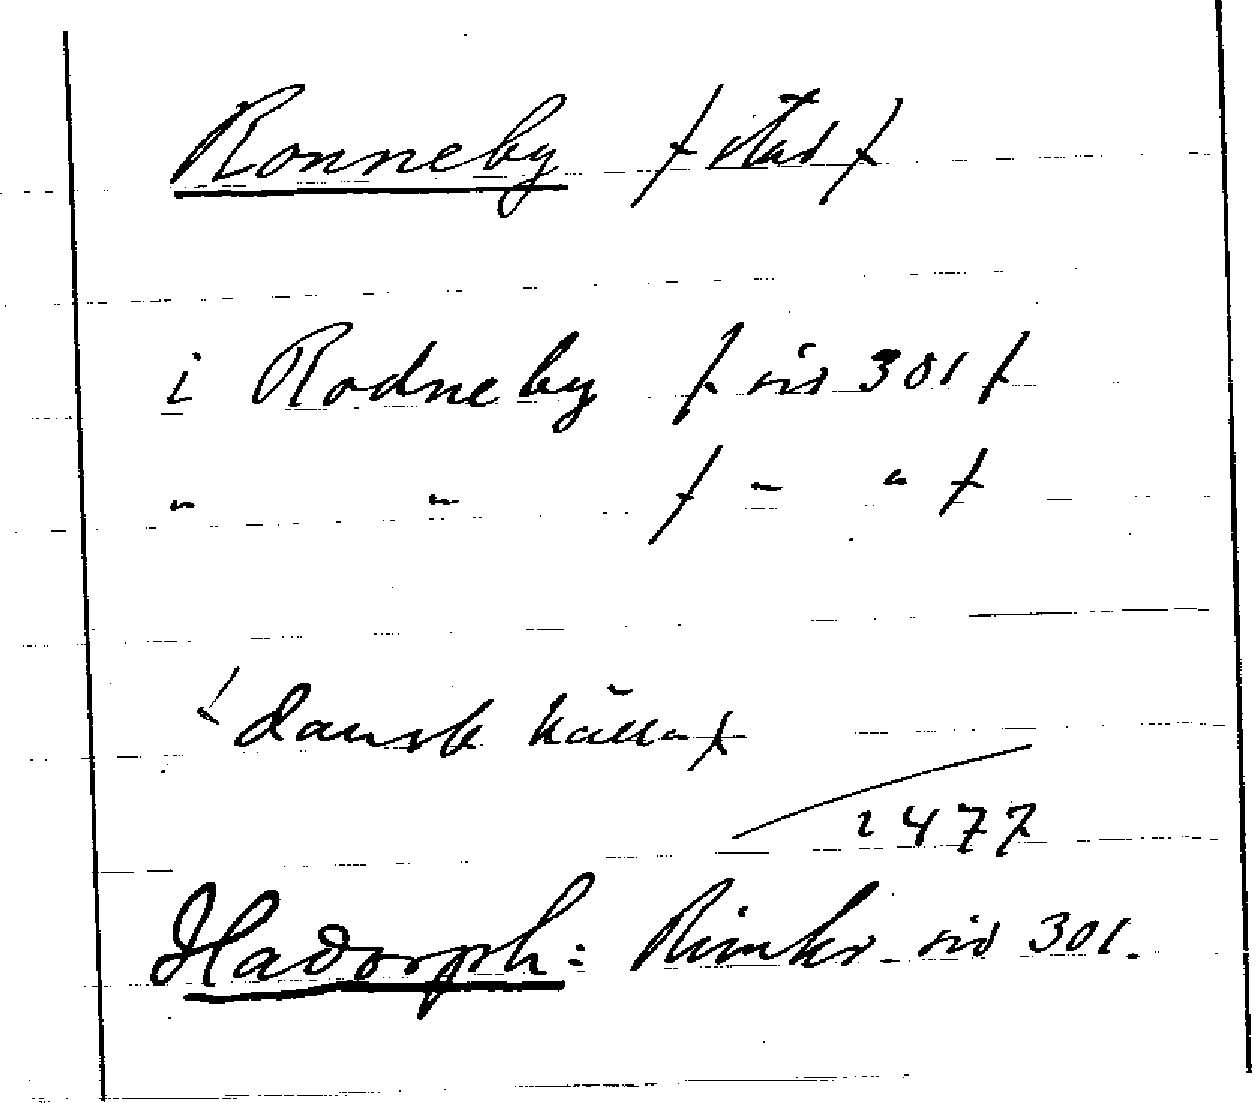 Ronneby / stad /
i Rodneby / sid 301 /
" " / " " /
/ dansk källa /
1477
Hadorph: Rimkr. sid 301.